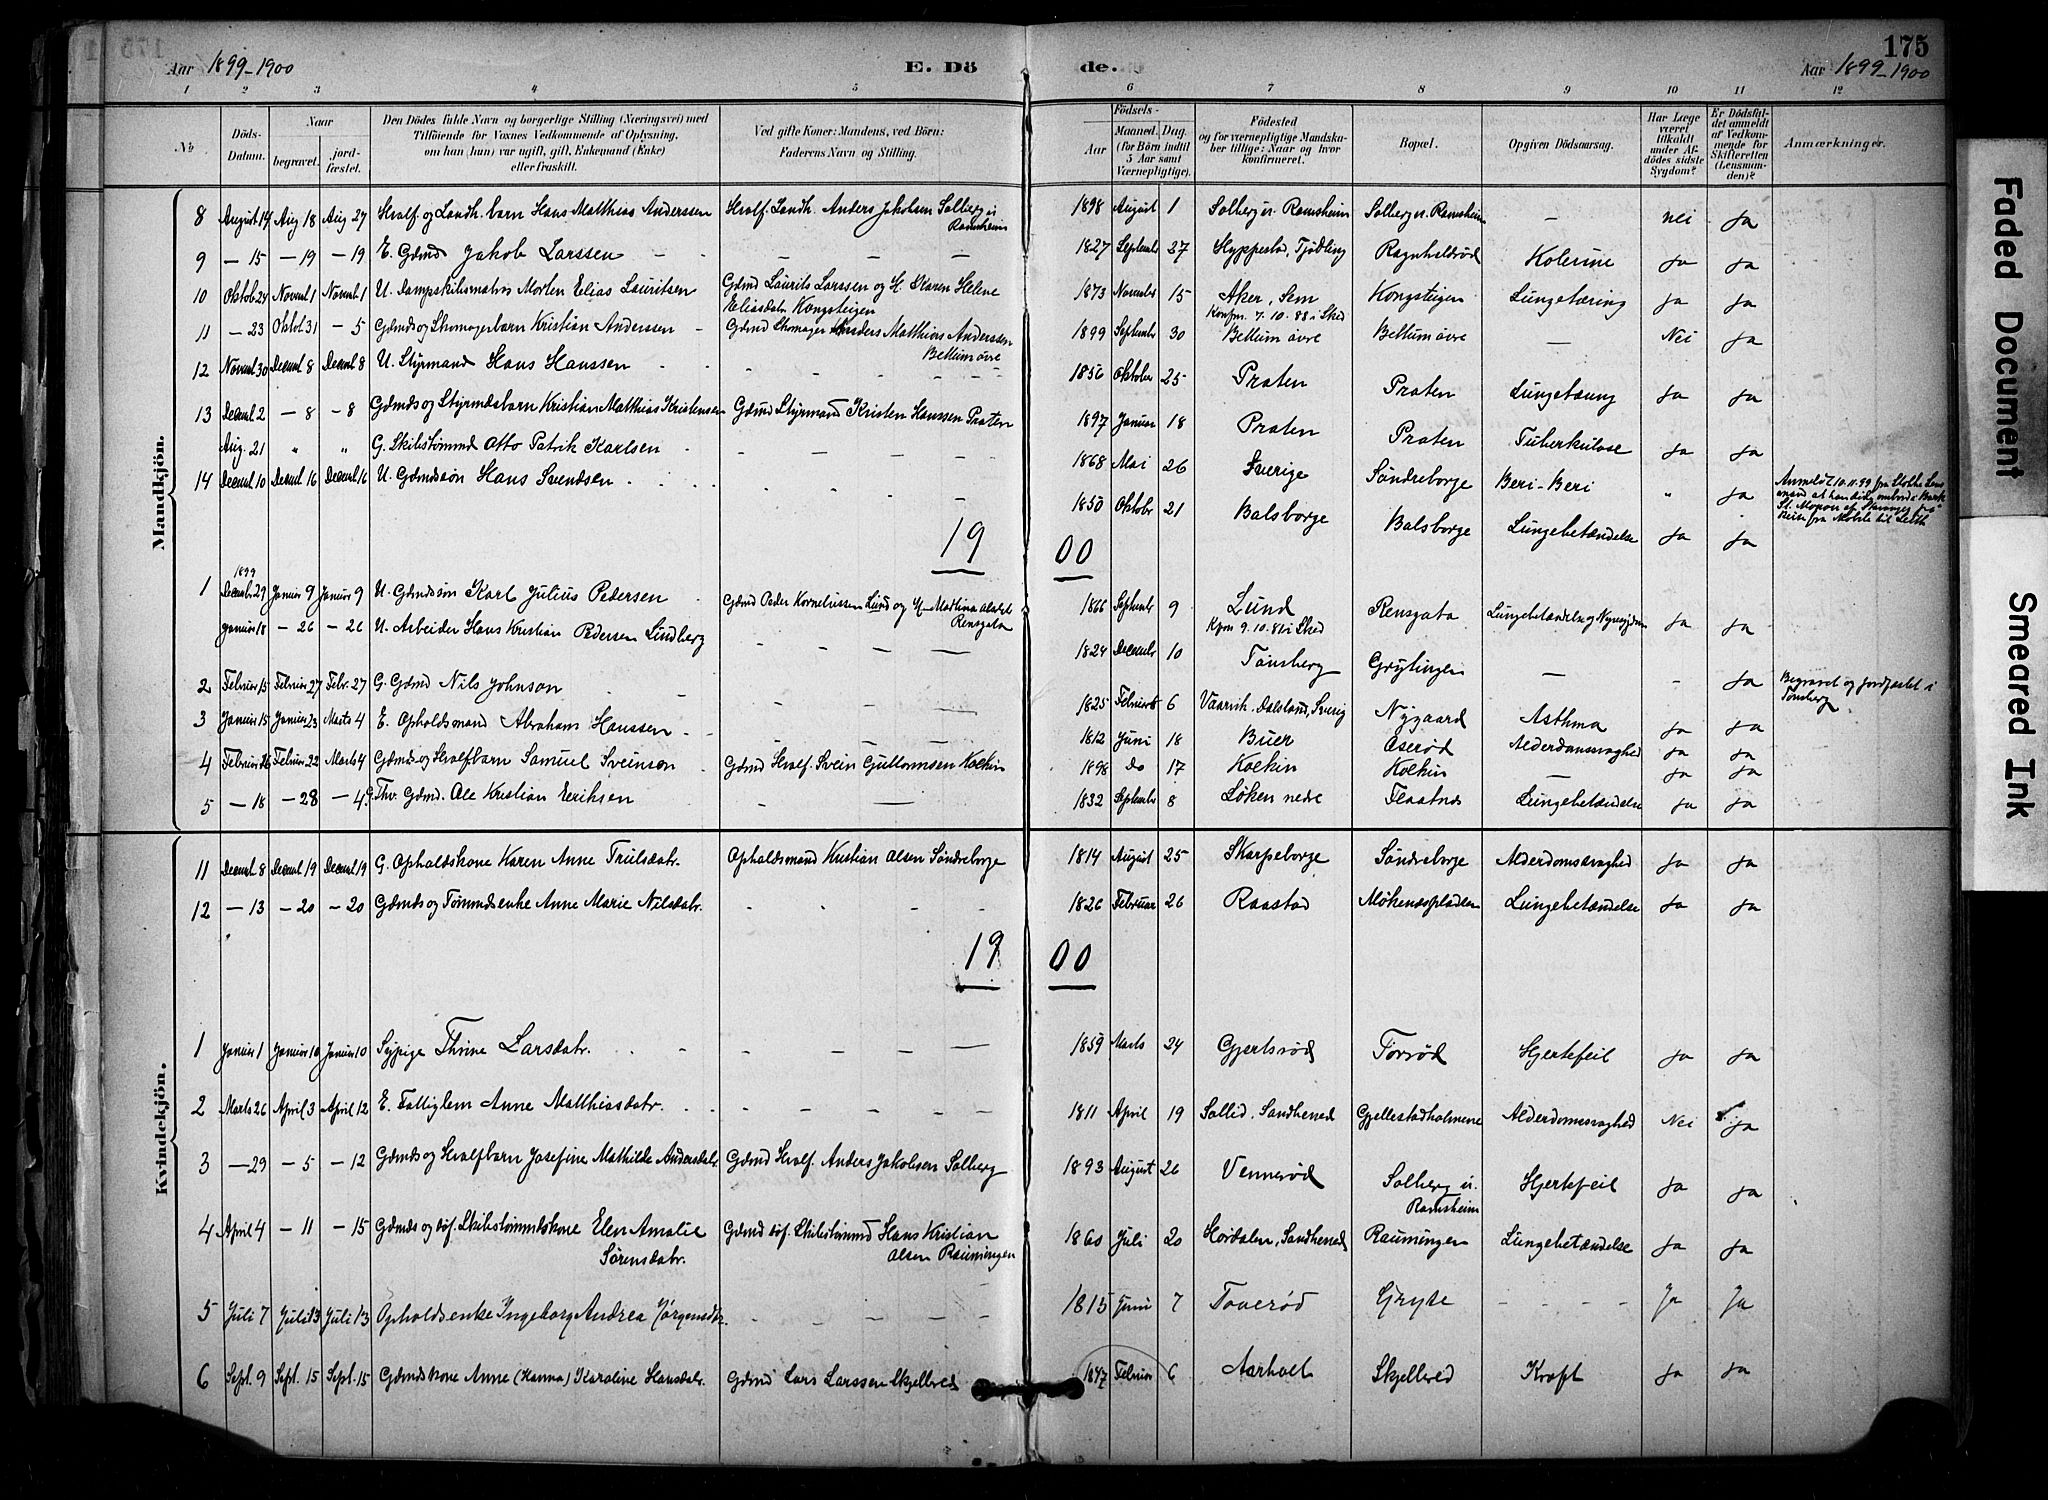 Aar 1899-1900
E. Dö
de.
Aar 1899-1900
175
1 2 3 4 5 6 7 8 9 10 11 12
No
Döds-Datum.
Naar
begravet.
jord-fæstet.
Den Dödes fulde Navn og borgerlige Stilling (Næringsvei) med
Tilföiende for Voxnes Vedkommende af Oplysning,
om han (hun) var ugift, gift, Enkemand (Enke)
eller fraskilt.
Ved gifte Koner: Mandens, ved Börn:
Faderens Navn og Stilling.
Födsels-
Aar
Maaned. Dag.
(for Börn indtil
5 Aar samt
Værnepligtige).
Födested
og for værnepligtige Mandskaber tillige: Naar og hvor
konfirmeret.
Bopæl.
Opgiven Dödsaarsag.
Har Læge
været
tilkaldt
under Afdödes sidste
Sygdom?
Er Dödsfaldet anmeldt
af Vedkommende for
Skifteretten
(Lensmanden)?
Anmærkninger.
Mandkjön.
8 August 14 Aug 18 Aug 27 Hvalf. og Landh. barn Hans Matthias Anderssen Hvalf. Landh. Anders Jakobsen Solberg u. Ramsheim 1898 August 1 Solberg u. Ramsheim Solberg u. Ramsheim — nei Ja
9 — 15 — 19 — 19 E. Gdmd Jakob Larssen — — — 1827 Septembr 27 Hyppestad, Tjødling Ragnhildrød Kolerine Ja Ja
10 Oktob. 24 Novemb 1 Novemb 1 U. Dampskibsmatros Morten Elias Lauritsen Gdmd Laurits Larssen og H. Maren Helene Eliasdatr Kongsteigen 1873 Novembr 15 Aker, Sem Konfm. 7.10.88 i Sked Kongsteigen Lungetæring Ja Ja
11 — 23 Oktob 31 — 5 Gdmds og Skomagerbarn Kristian Anderssen Gdmd Skomager Anders Matthias Anderssen Bettum øvre 1899 Septembr 30 Bettum øvre Bettum øvre — Nei Ja
12 Novemb 30 Decemb 8 Decemb 8 U. Styrmand Hans Hanssen - - - 1856 Oktober 25 Præten Præten Lungetæring Ja Ja
13 Decemb 2 — 8 — 8 Gdmds og Styrmdsbarn Kristian Matthias Kristensen Gdmd Styrmand Kristen Hanssen Præten 1897 Januar 18 Præten Præten Tuberkulose Ja Ja
Aug. 21 " " G. Skibstømmd Otto Patrik Karlsen - - - 1868 Mai 26 Sverige Søndreborge Beri-Beri " Ja
14 Decemb 10 Decemb 16 Decemb 16 U. Gdmdssøn Hans Svendsen - - - 1850 Oktobr 21 Balsborge Balsborge Lungebetændelse Ja Ja
1900
1 1899 Decembr 29 Januar 9 Januar 9 U. Gdmdssøn Karl Julius Pedersen Gdmd Peder Korneliussen Lund og H. Mathina Rensgata 1866 Septembr 9 Lund Kfm 9.10.81 i Sked Rensgata Lungebetændelse og Ja Ja
Januar 18 — 26 — 26 U. Arbeider Hans Kristian Pedersen Lindberg - - - 1824 Decembr 10 Tønsberg Grytingen — - Ja Begravet og jordfæstet i Tønsberg
2 Februar 15 Februar 27 Febr. 27 G. Gdmd Nils Johnson - - 1825 Februar 6 Vaarvik. Dalsland, Sverig Nygaard Asthma Ja Ja
3 Januar 15 Januar 23 Marts 4 E. Opholdsmand Abraham Hanssen - - 1812 Juni 18 Buer Aserød Alderdomssvaghed Ja Ja
4 Februar 16 Februar 22 Marts 4 Gdmds og Hvalfbarn Samuel Sveinson Gdmd Hvalf. Svein Guttormsen Kolkin 1898 do 17 Kolkin Kolkin — Ja Ja
5 — 18 — 28 — 4 G. Thv. Gdmd. Ole Kristian Eriksen - — 1832 Septembr 8 Løken nedre Flaatnes Lungebetændelse Ja Ja
Kvindekjön.
11 Decemb 8 Decemb 19 Decemb 19 G. Opholdskone Karen Anne Trulsdatr. Opholdsmand Kristian Olsen Søndreborge 1814 August 25 Skarpeborge Søndreborge Alderdomssvaghed Ja Ja
12 — 13 — 20 — 20 Gdmds og Tømmdsenke Anne Marie Nilsdatr. - - - 1826 Februar 26 Raastad Møkenespladsen Lungebetændelse Ja Ja
1900
1 Januar 1 Januar 10 Januar 10 Sypige Thrine Larsdatr. - - - 1859 Marts 24 Gjertsrød Torrød Hjertefeil Ja Ja
2 Marts 26 April 3 April 12 E. Fattiglem Anne Matthiasdatr. - - - 1811 April 19 Sollid, Sandhered Gjellestadholmene Alderdomssvaghed Nei Ja
3 — 29 — 5 — 12 Gdmds og Hvalfbarn Josefine Mathilde Andersdatr. Gdmd Hvalf. Anders Jakobsen Solberg 1893 August 26 Vennerød Solberg u. Ramsheim Hjertefeil Ja Ja
4 April 4 — 11 — 15 Gdmds og döf. Skibstømmdskone Elen Amalie Sørensdatr. Gdmd döf. Skibstømmd Hans Kristian Olsen Rauningen 1860 Juli 20 Hordalen, Sandhered Rauningen Lungebetændelse Ja Ja
5 Juli 7 Juli 13 Juli 13 Opholdsenke Ingeborg Andrea Jörgensdtr. - - - 1815 Juni 7 Taverød Gryte - - - - Ja Ja
6 Sept. 9 Sept. 15 Sept. 15 Gdmdskone Anne (Hanna) Karoline Hansdatr. Gdmd Lars Larssen Skjelbred 1847 Februar 6 Aarholt Skjelbred Kræft Ja Ja
Faded Document
Smeared Ink